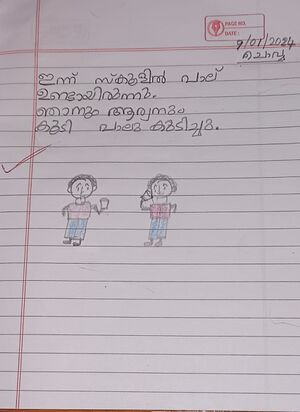 PAGE NO.
DATE :
9/01/2024
ചൊവ്വ
ഇന്ന് സ്കൂളിൽ പാല്
ഉണ്ടായിരുന്നു.
ഞാനും ആര്യനും
കൂടി പാലു കുടിച്ചു.